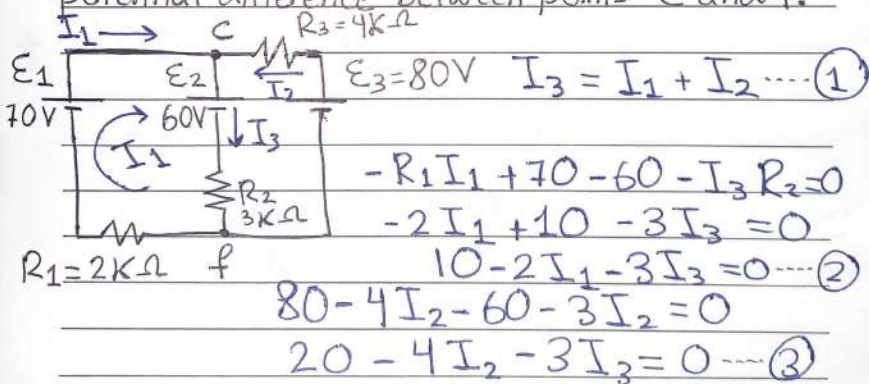 potential difference between points C and f.
I₁→ C R₃=4KΩ
ε1 ε₂ I₂ ε₃=80V I₃ = I₁ + I₂ ---- ①
70V 60V ↓I₃
I₁
-R₁I₁ +70-60-I₃R₂=0
R₂
3KΩ -2I₁ +10 -3I₃ =0
R₁=2KΩ f 10-2I₁-3I₃=0 ---- ②
80-4I₂-60-3I₂=0
20 - 4I₂ -3I₃= 0 --- ③